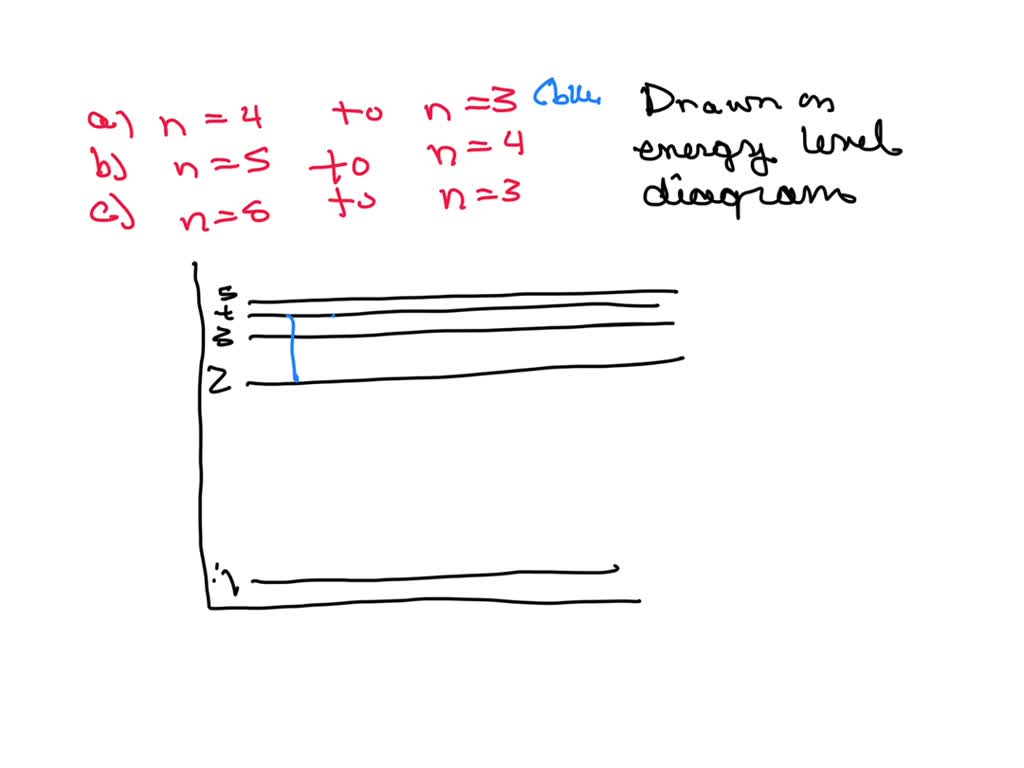 a) n = 4 to n = 3
Drawn as
b) n = 5 to n = 4
energy level
c) n = 6 to n = 3
diagrams
5
4
3
2